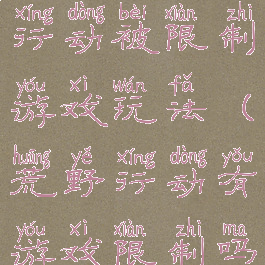 xíng dòng bèi xiàn zhì
行动被限制
yóu xì wán fǎ
游戏玩法（
huāng yě xíng dòng yǒu
荒野行动有
yóu xì xiàn zhì ma
游戏限制吗